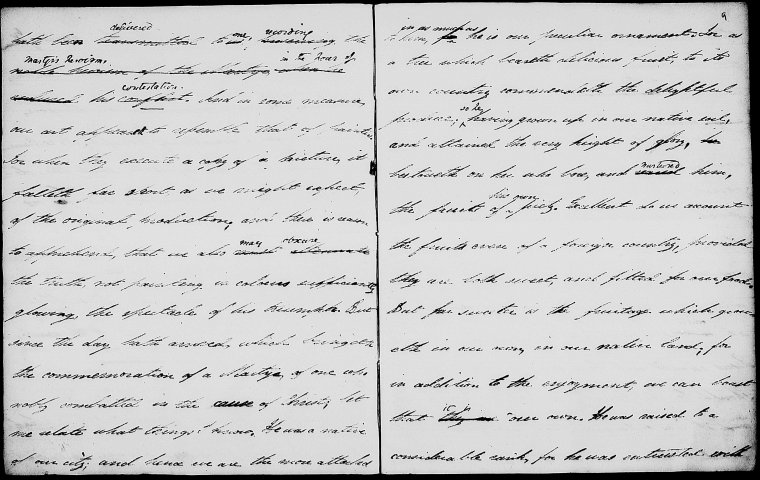 delivered
hath been transmitted to us, recording the
Martyr's heroism in the hour of
noble heroism of the Martyr when he
contestation.
endured his conflict. And in some measure
our art appears to resemble that of painters
for when they execute a copy of a picture, it
falleth far short as we might expect,
of the original production, and there is reason
may obscure
to apprehend, that we also must attenuate
the truth, not painting in colours sufficiently
glowing the spectacle of his triumphs. But
since the day hath arrived, which bringeth
the commemoration of a Martyr, of one who
nobly combatted in the cause of Christ; let
me relate what things I know. He was a native
of our city; and hence we are the more attached
9
in as much as
to him, for he is our peculiar ornament. For as
a tree which beareth delicious fruit, to its
own country commendeth the delightful
so he
produce; having grown up in our native soil,
and attained the very height of glory, he
nurtured
bestoweth on her who bore, and raised him,
his own
the fruits of piety. Excellent do we account
the fruits even of a foreign country, provided
they are both sweet, and fitted for our food.
But far sweeter is the fruitage which grow
eth in our own, in our native land, for
in addition to the enjoyment, we can boast
it is
that they are our own. He was raised to a
considerable rank, for he was entrusted with